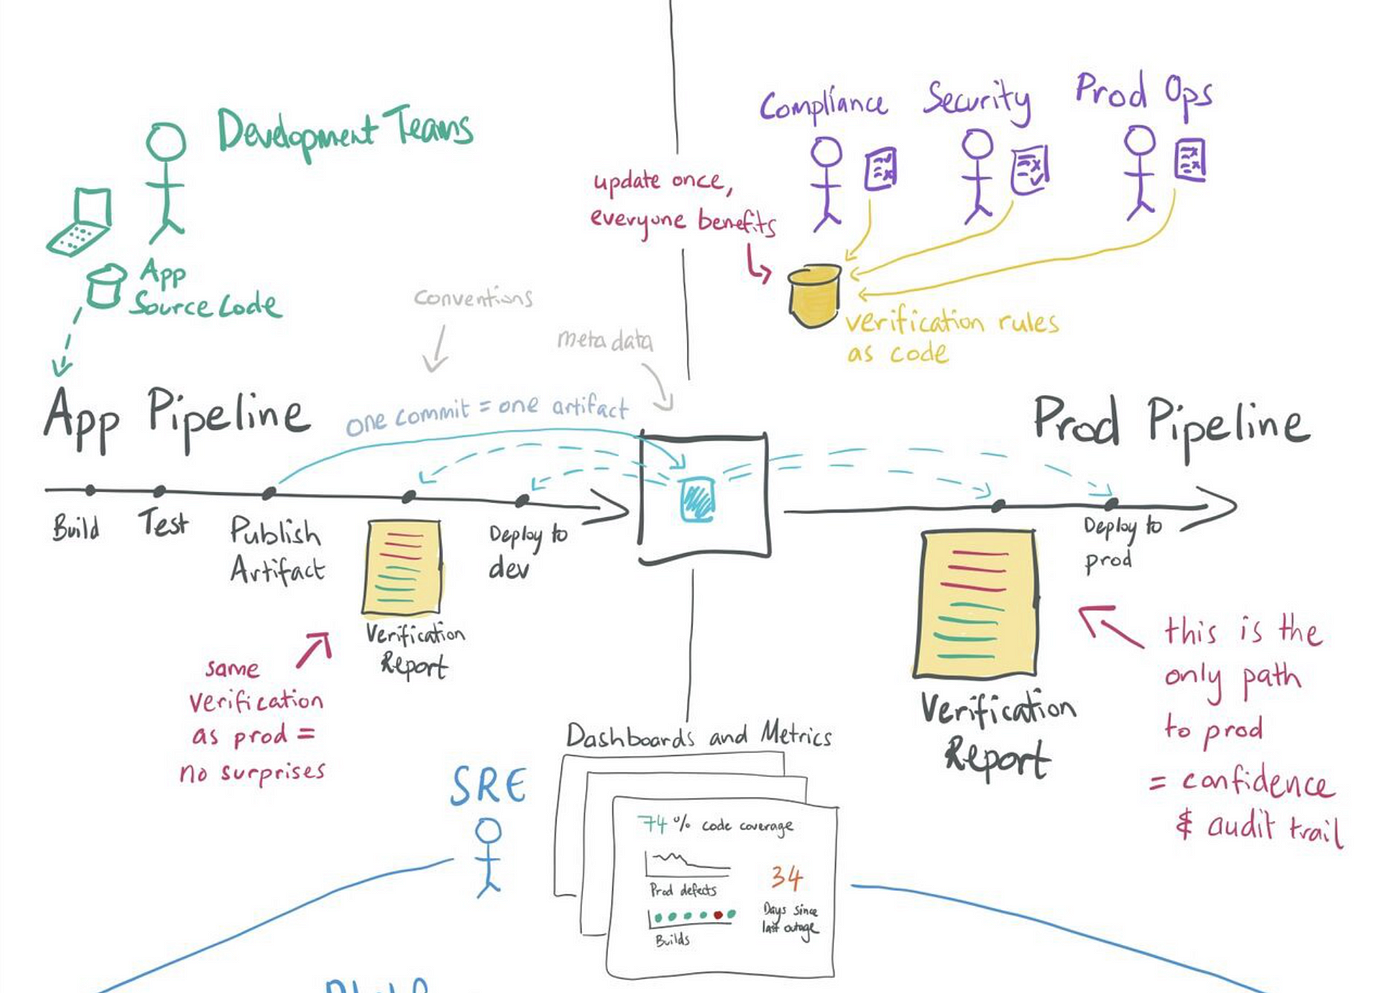 Development Teams
App
Source Code
Compliance
Security
Prod Ops
update once,
everyone benefits
verification rules
as code
conventions
metadata
App Pipeline
one commit = one artifact
Prod Pipeline
Build
Test
Publish
Artifact
Deploy to
dev
Deploy to
prod
Verification
Report
same
verification
as prod =
no surprises
Verification
Report
this is the
only path
to prod
= confidence
& audit trail
Dashboards and Metrics
SRE
74% code coverage
Prod defects
34
Days since
last outage
Builds